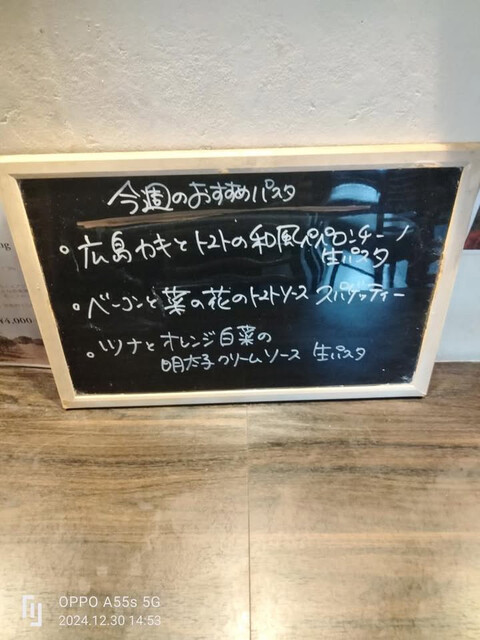 今週のおすすめパスタ
• 広島カキとトマトの和風ペペロンチーノ
生パスタ
• ベーコンと菜の花のトマトソース スパゲッティー
• ツナとオレンジ白菜の
明太子クリームソース 生パスタ
¥4,000
OPPO A55s 5G
2024.12.30 14:53